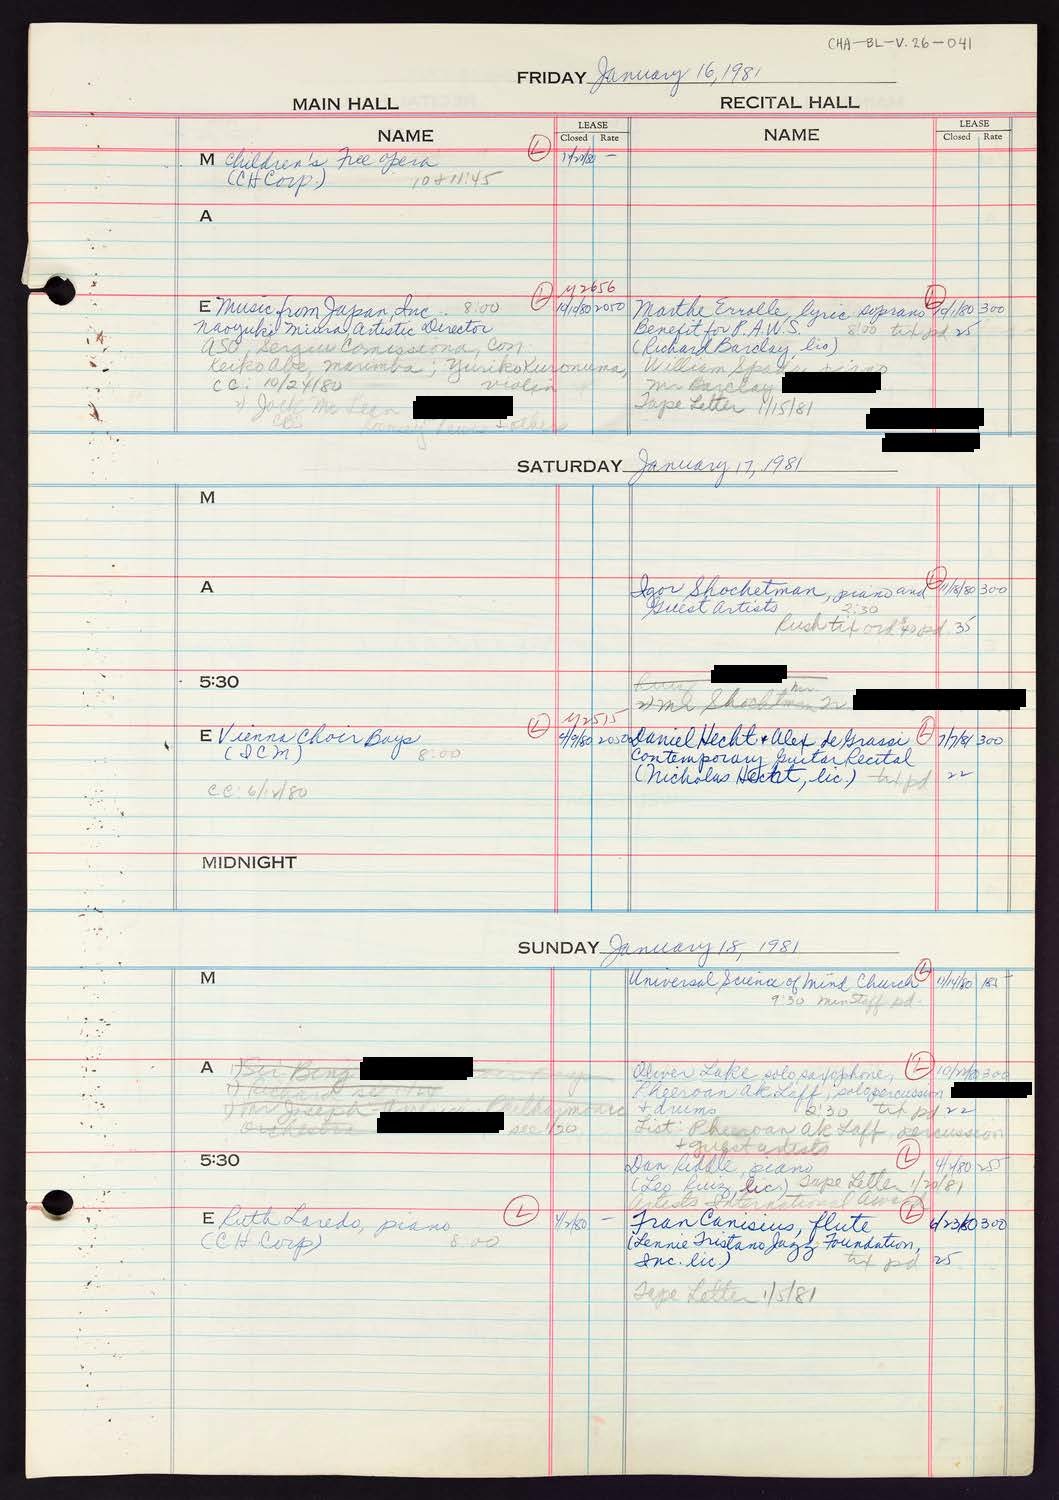 CHA-BL-V. 26-041
FRIDAY January 16, 1981
MAIN HALL
RECITAL HALL
NAME
LEASE
Closed Rate
NAME
LEASE
Closed Rate
M Children's Free Opera
(CH Corp.) 10 & 11:45
L
A
E Music from Japan, Inc. 8:00
L 10/10/80 2050
Naoyuki Miura, Artistic Director
ASO, Sergiu Comissiona, Con.
Keiko Abe, marimba; Yuriko Kuronuma,
violin
CC: 10/24/80
Marthe Errolle, lyric soprano
L 300
Benefit for P.A.W.S. 8:00 tix pd 25
(Richard Barclay, lic)
William
Mr Barclay
Tape Letter 1/15/81
SATURDAY January 17, 1981
M
A
Igor Shochetman, piano and
L 11/18/80 300
Guest Artists 2:30
Rush tix ord pd 35
5:30
E Vienna Choir Boys
(ICM) 8:00
L 9/9/80 2050
CC: 6/12/80
Daniel Hecht & Alex de Grassi
L 300
Contemporary Guitar Recital
(Nicholas Hecht, lic.) tix pd 22
MIDNIGHT
SUNDAY January 18, 1981
M
Universal Science of Mind Church
L 11/14/80
9:30 min staff pd.
A
Oliver Lake solo saxophone,
L 300
Pheeroan Ak Laff, solo percussion
& drums 2:30 tix pd 22
List: Pheeroan Ak Laff, percussion
+ guest artists
5:30
Dan Riddle, piano
L 255
(Leo Ruiz, lic.) Tape Letter 1/20/81
Artists International Award
E Ruth Laredo, piano
(CH Corp) 8:00
L 4/2/80 -
Fran Canisius, flute
L 6/23/80 300
(Lennie Tristano Jazz Foundation,
Inc. lic.) tix pd 25
Tape Letter 1/5/81